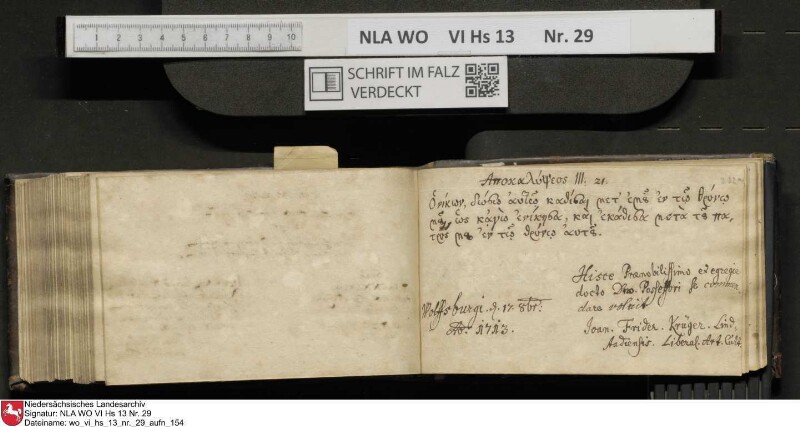 NLA WO VI Hs 13 Nr. 29
1 2 3 4 5 6 7 8 9 10
SCHRIFT IM FALZ
VERDECKT
Αποκαλύψεος III. 21.
Ὁ νικων, δώσω αὐτῷ καθίσαι μετ' ἐμȣ͂ ἐν τῷ θρόνῳ
μȣ, ὡς κᾀγὼ ἐνίκησα, καὶ ἐκάθισα μετὰ τȣ͂ πα-
τρός μȣ ἐν τῷ θρόνῳ αὐτȣ͂.
Hisce Prænobilissimo et egregie
docto Dno. Possessori se commen-
dare voluit
Joan. Frider. Krüger. Lind,
Aadiensis. Liberal. Art. Cult
Wolffsburgi. d. 17. 8br.
Ao. 1713.
Niedersächsisches Landesarchiv
Signatur: NLA WO VI Hs 13 Nr. 29
Dateiname: wo_vi_hs_13_nr._29_aufn_154